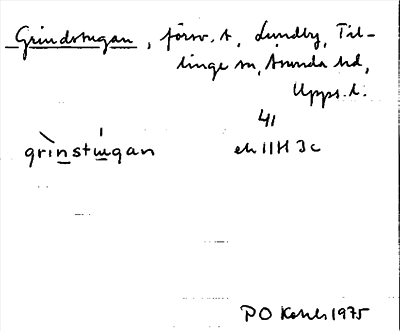 Grindstugan, försv. t, Lundby, Til-
linge sn, Åsunda hd,
Upps. l.
41
grinstugan ek 11H 3c
PO Kahls 1975